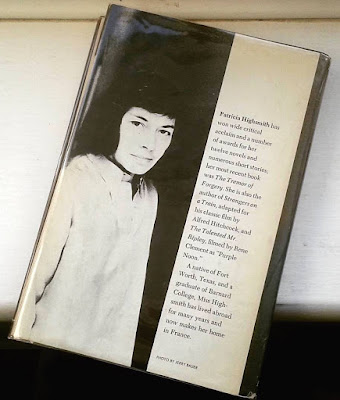 Patricia Highsmith has
won wide critical
acclaim and a number
of awards for her
twelve novels and
numerous short stories;
her most recent book
was The Tremor of
Forgery. She is also the
author of Strangers on
a Train, adapted for
his classic film by
Alfred Hitchcock, and
The Talented Mr
Ripley, filmed by Rene
Clement as "Purple
Noon."
A native of Fort
Worth, Texas, and a
graduate of Barnard
College, Miss High-
smith has lived abroad
for many years and
now makes her home
in France.
PHOTO BY JERRY BAUER